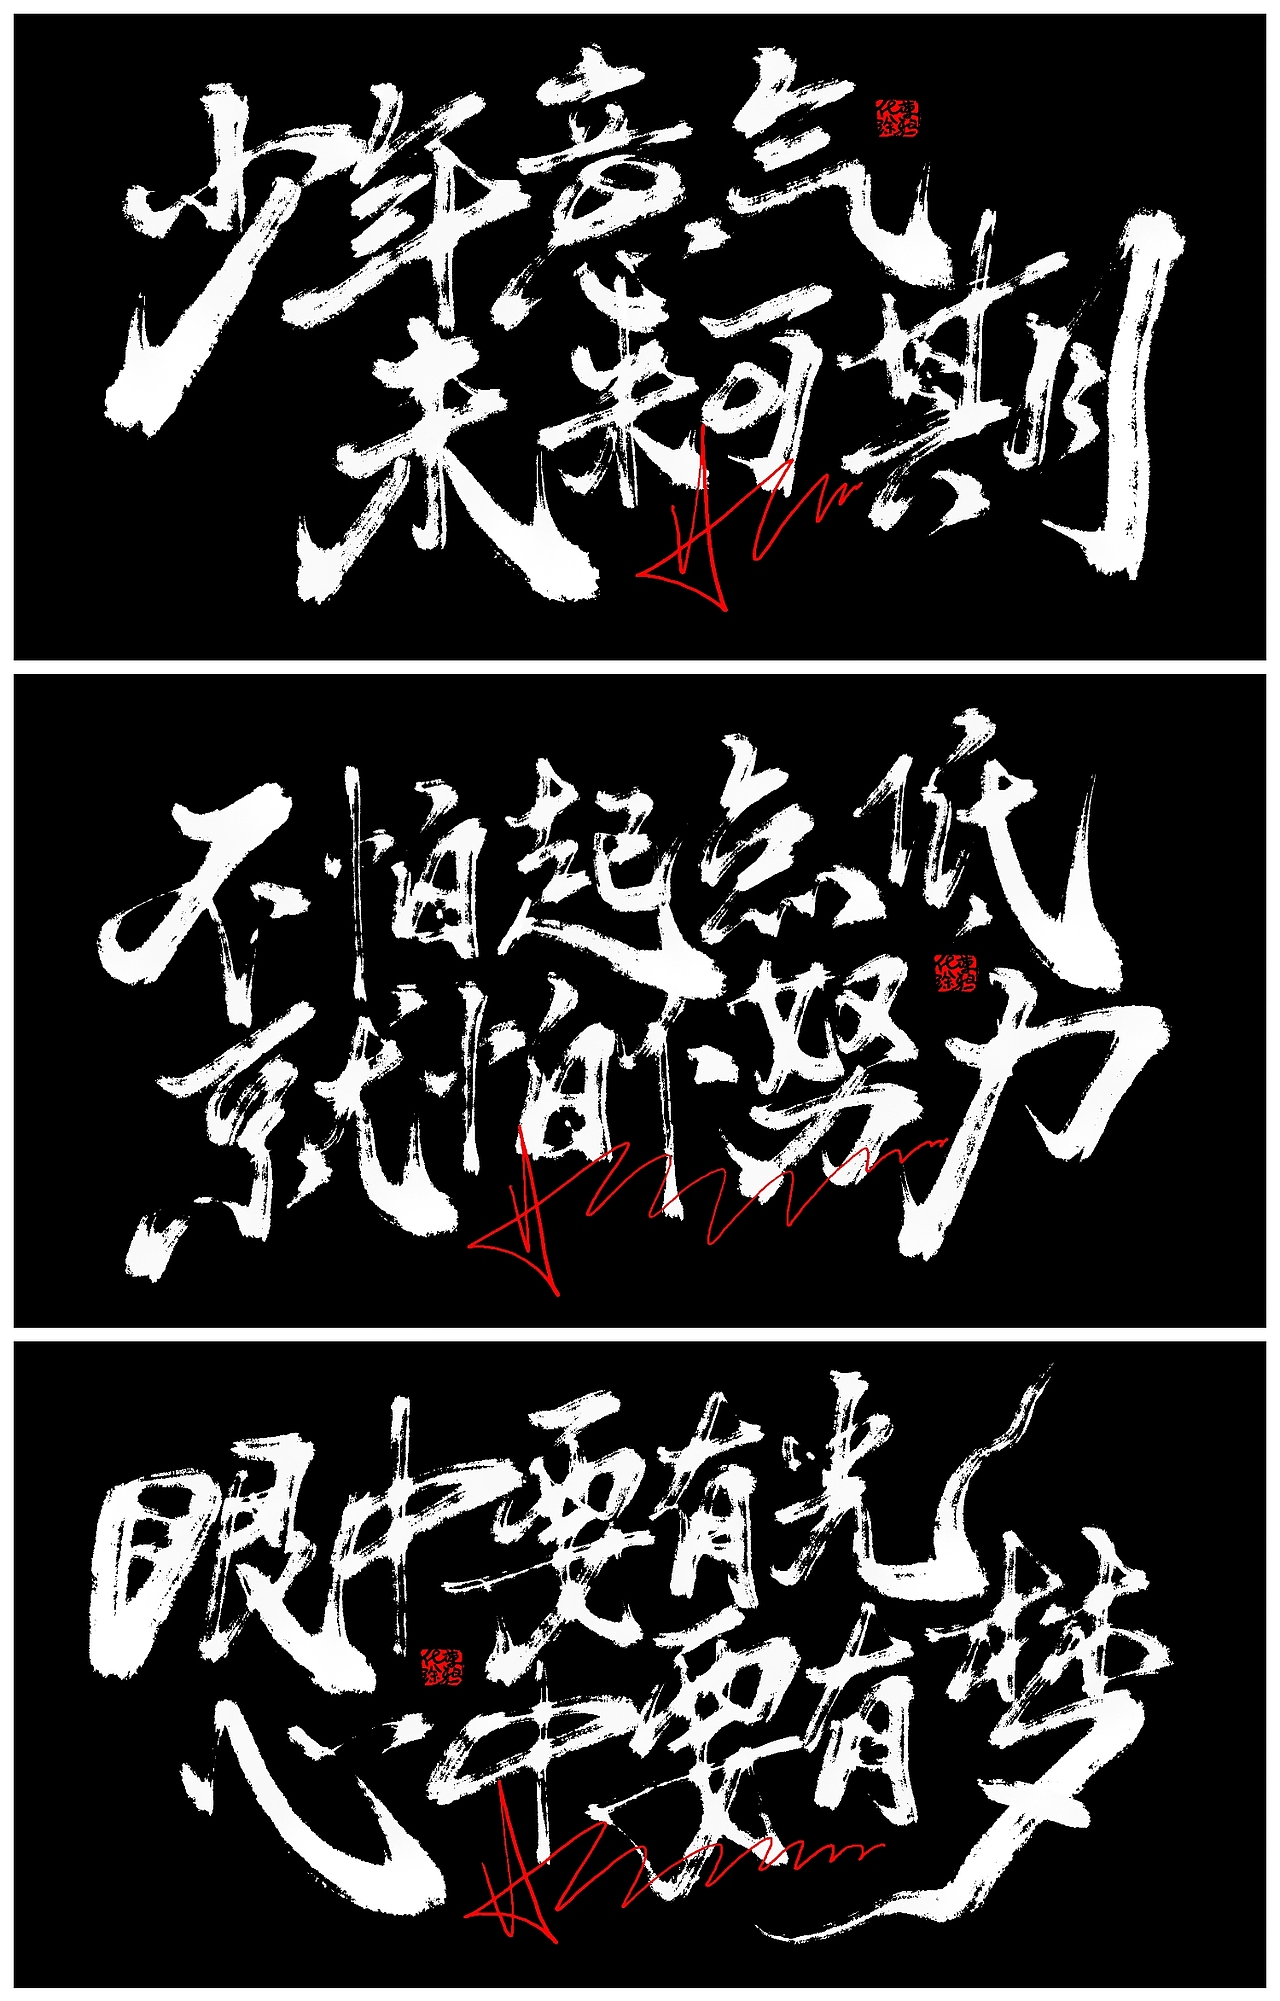 少年意气
未来可期
不怕起点低
就怕不努力
眼中要有光
心中要有梦